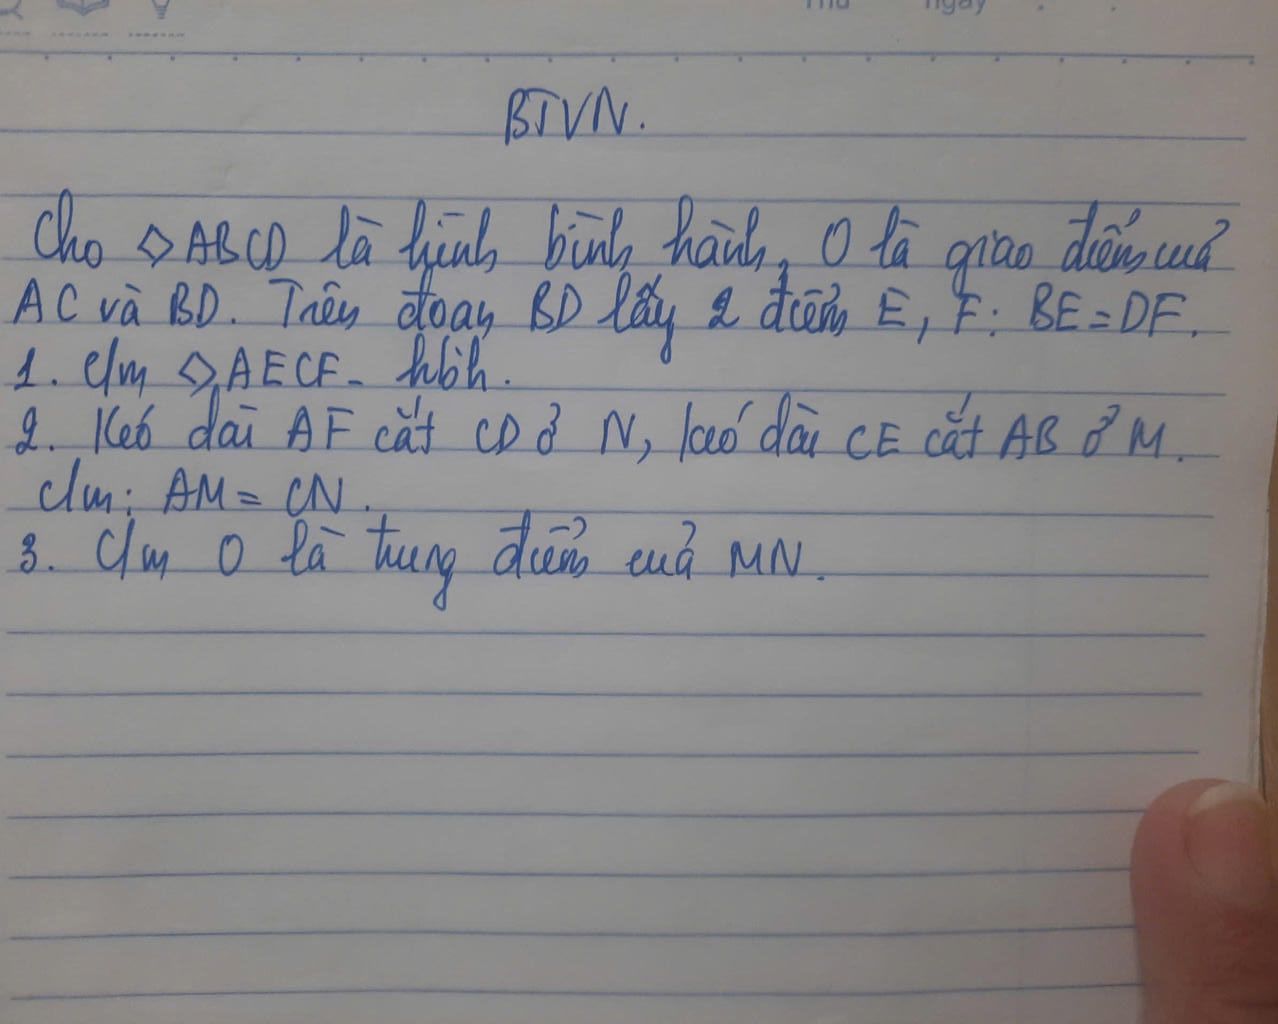 Thứ ngày
BTVN.
Cho ◇ABCD là hình bình hành, O là giao điểm của
AC và BD. Trên đoạn BD lấy 2 điểm E, F: BE = DF.
1. C/m ◇AECF- hbh.
2. Kéo dài AF cắt CD ở N, kéo dài CE cắt AB ở M.
C/m: AM = CN.
3. C/m O là trung điểm của MN.